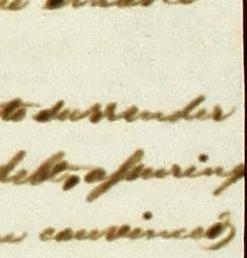 to surrender
debt, assuring
convinced